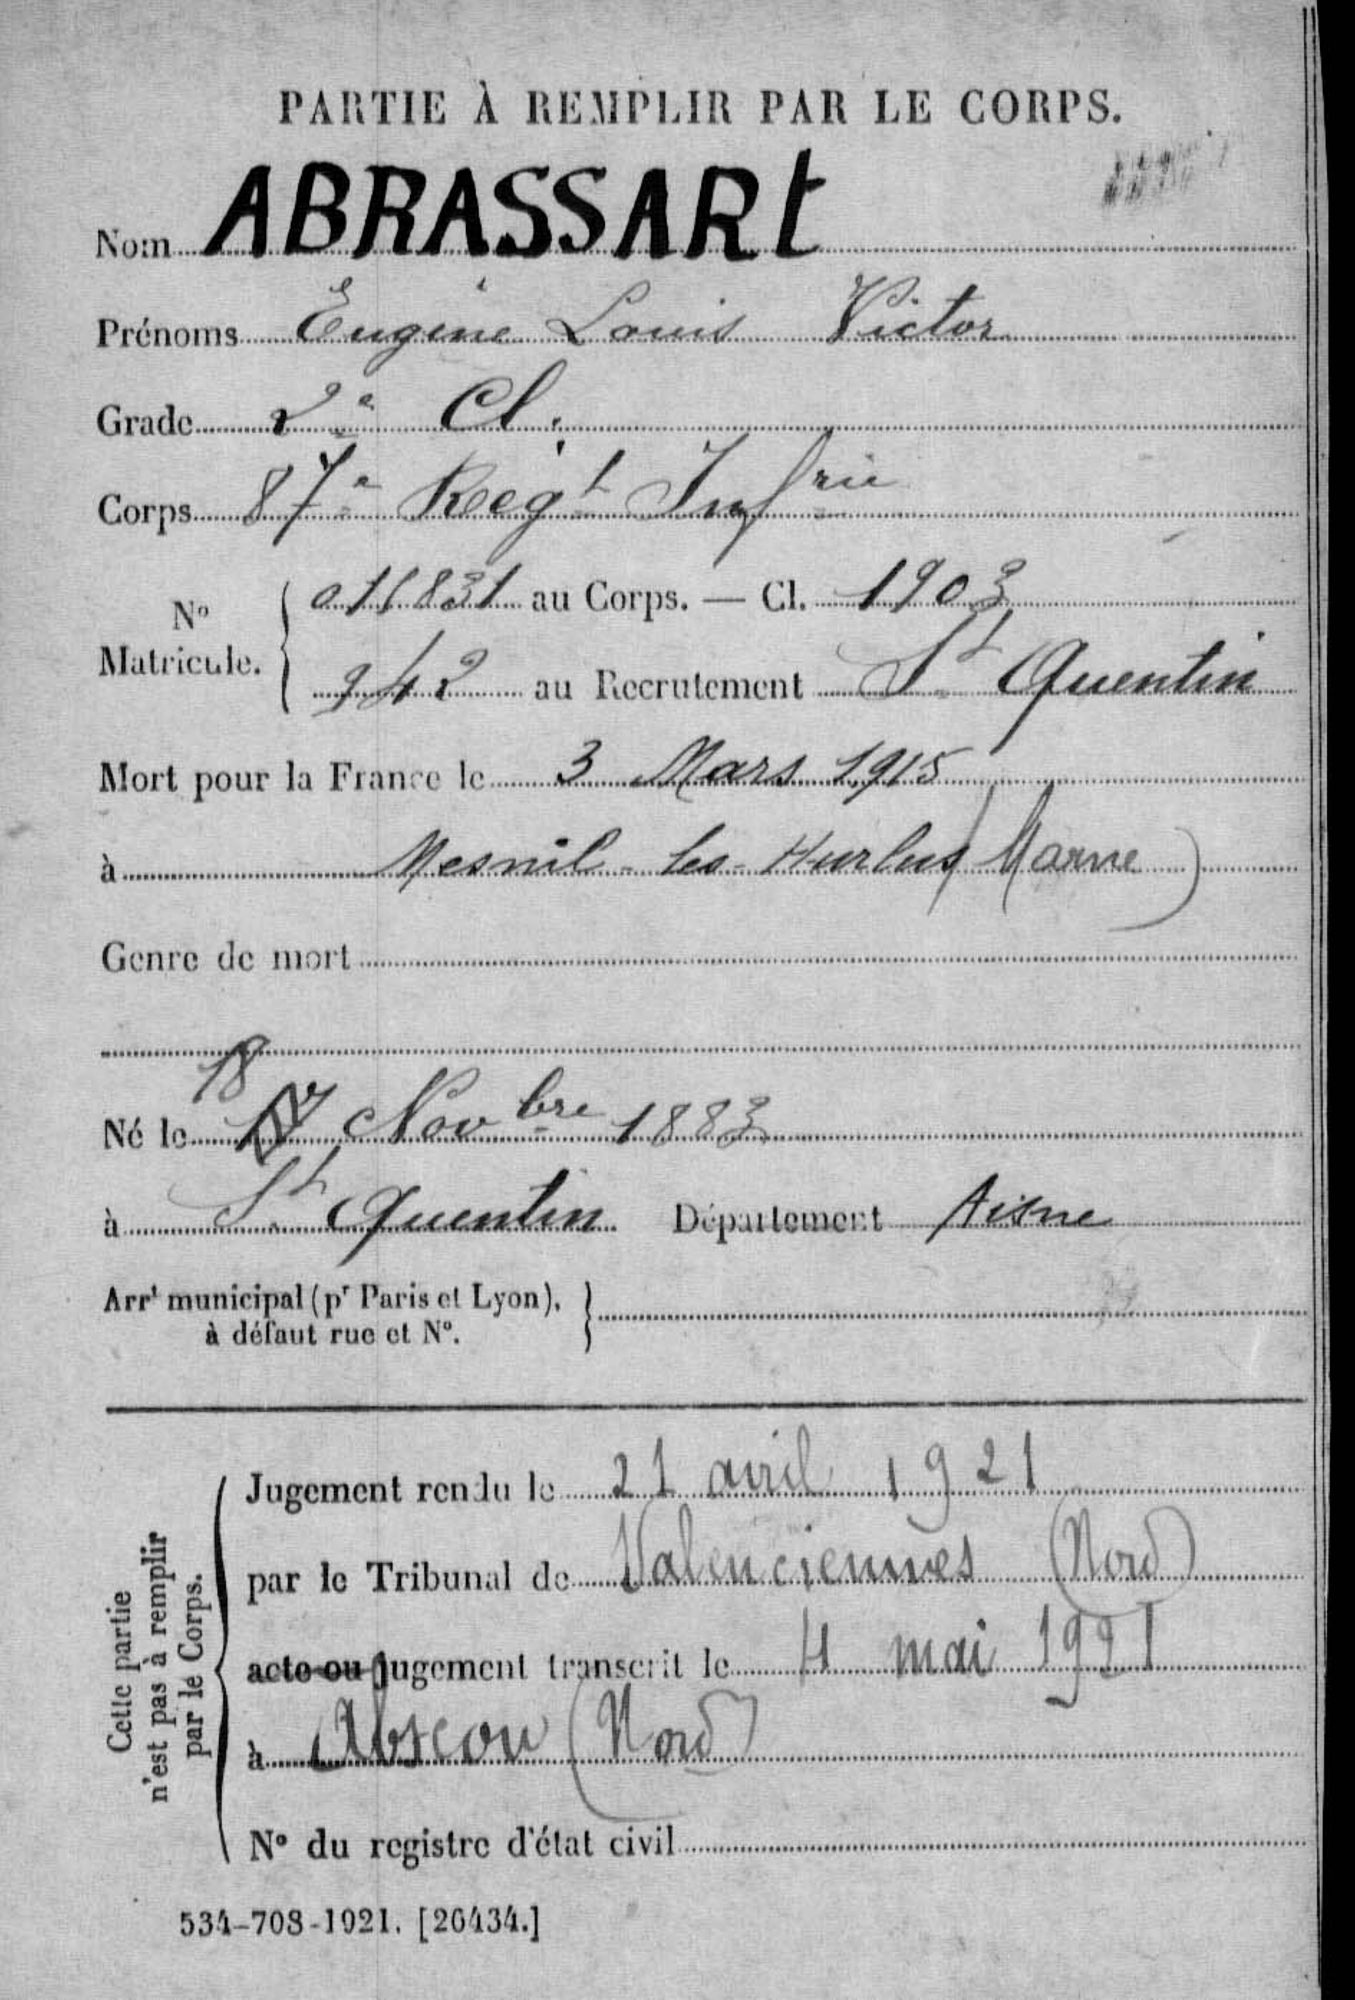 PARTIE À REMPLIR PAR LE CORPS.
Nom ABRASSARt
Prénoms Eugène Louis Victor
Grade 2e Cl.
Corps 87e Regt Infrie
No Matricule. 016831 au Corps. — Cl. 1903
942 au Recrutement St Quentin
Mort pour la France le 3 Mars 1915
à Mesnil-les-Hurlus (Marne)
Genre de mort
18
Né le 17 Novbre 1883
à St Quentin Département Aisne
Arrt municipal (pr Paris et Lyon),
à défaut rue et No.
Cette partie
n'est pas à remplir
par le Corps.
Jugement rendu le 21 avril 1921
par le Tribunal de Valenciennes (Nord)
acte ou jugement transcrit le 4 mai 1921
à Abscon (Nord)
No du registre d'état civil
534-708-1921. [26434.]